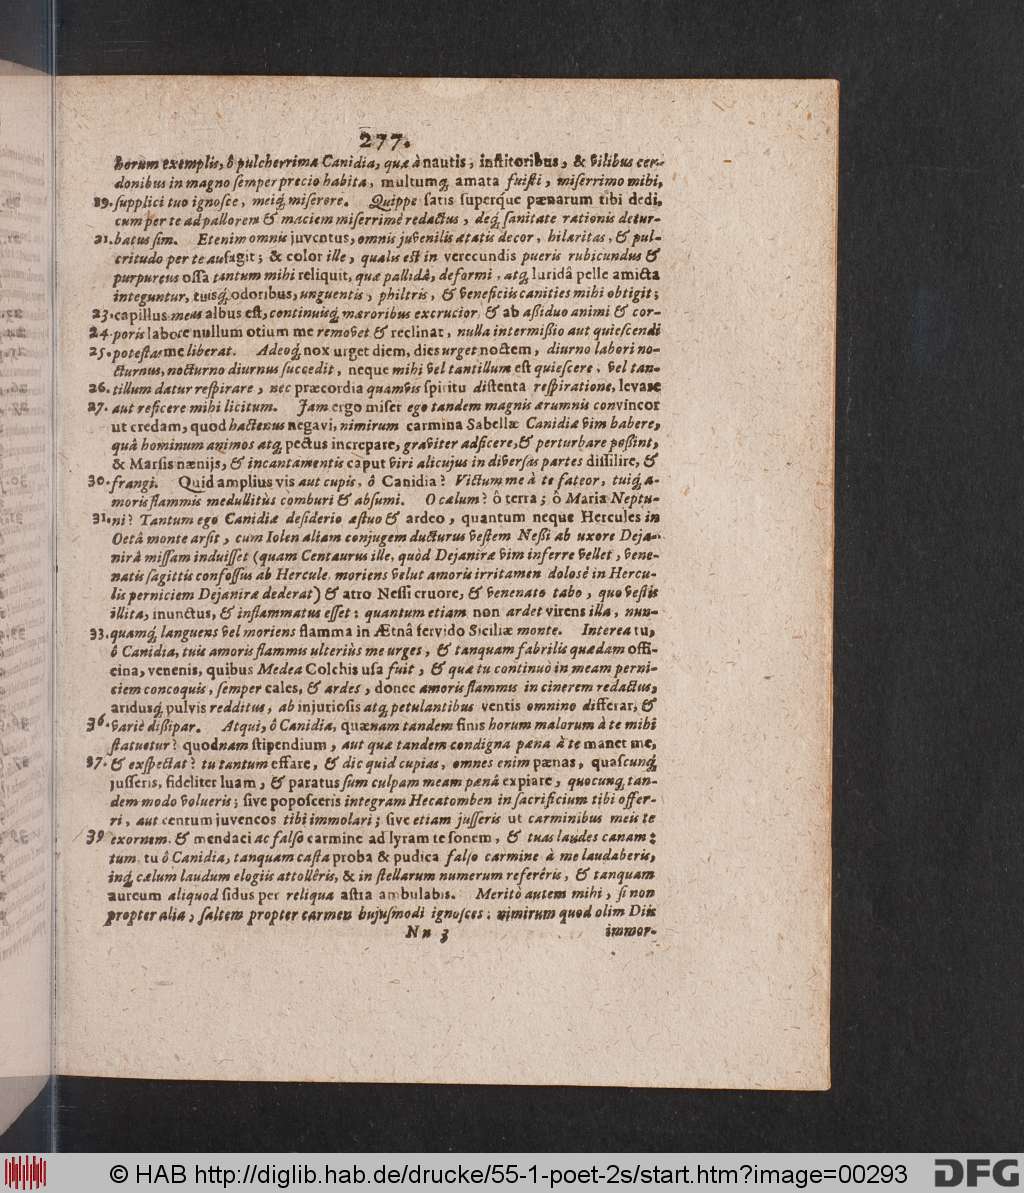 277.
horum exemplis, ô pulcherrima Canidia, quæ à nautis, institoribus, & vilibus cer-
donibus in magno semper precio habita, multumq́; amata fuisti, miserrimo mihi,
19. supplici tuo ignosce, meiq́; miserere. Quippe satis superque pænarum tibi dedi,
cum per te ad pallorem & maciem miserrimè redactus, deq́; sanitate rationis detur-
21. batus sim. Etenim omnis juventus, omnis juvenilis ætatis decor, hilaritas, & pul-
critudo per te aufagit; & color ille, qualis est in verecundis pueris rubicundus &
purpureus ossa tantum mihi reliquit, quæ pallidâ, deformi, atq́; luridâ pelle amicta
integuntur, tuisq́; odoribus, unguentis, philtris, & veneficiis canities mihi obtigit;
23. capillus meus albus est, continuisq́; mæroribus excrucior & ab assiduo animi & cor-
24. poris labore nullum otium me removet & reclinat, nulla intermissio aut quiescendi
25. potestas me liberat. Adeoq́; nox urget diem, dies urget noctem, diurno labori no-
cturnus, nocturno diurnus succedit, neque mihi vel tantillum est quiescere, vel tan-
26. tillum datur respirare, nec præcordia quamvis spiritu distenta respiratione, levare
27. aut reficere mihi licitum. Jam ergo miser ego tandem magnis ærumnis convincor
ut credam, quod hactenus negavi, nimirum carmina Sabellæ Canidiæ vim habere,
quâ hominum animos atq́; pectus increpare, graviter adficere, & perturbare possint,
& Marsis nænijs, & incantamentis caput viri alicujus in diversas partes dissilire, &
30. frangi. Quid amplius vis aut cupis, ô Canidia? Victum me à te fateor, tuiq́; a-
moris flammis medullitùs comburi & absumi. O cælum? ô terra; ô Maria Neptu-
31. ni? Tantum ego Canidiæ desiderio æstuo & ardeo, quantum neque Hercules in
Oetâ monte arsit, cum Iolen aliam conjugem ducturus vestem Nessi ab uxore Deja-
nirâ missam induisset (quam Centaurus ille, quòd Dejaniræ vim inferre vellet, vene-
natis sagittis confossus ab Hercule, moriens velut amoris irritamen dolosè in Hercu-
lis perniciem Dejaniræ dederat) & atro Nessi cruore, & venenato tabo, quo vestis
illita, inunctus, & inflammatus esset: quantum etiam non ardet virens illa, nun-
33. quamq́; languens vel moriens flamma in Ætnâ fervido Siciliæ monte. Interea tu,
ô Canidia, tuis amoris flammis ulteriùs me urges, & tanquam fabrilis quædam offi-
cina, venenis, quibus Medea Colchis usa fuit, & quæ tu continuò in meam perni-
ciem concoquis, semper cales, & ardes, donec amoris flammis in cinerem redactus,
aridusq́; pulvis redditus, ab injuriosis atq́; petulantibus ventis omnino differar, &
36. variè dissipar. Atqui, ô Canidia, quænam tandem finis horum malorum à te mihi
statuetur? quodnam stipendium, aut quæ tandem condigna pæna à te manet me,
37. & exspectat? tu tantum effare, & dic quid cupias, omnes enim pænas, quascunq́;
jusseris, fideliter luam, & paratus sum culpam meam pænâ expiare, quocunq́; tan-
dem modo volueris; sive poposceris integram Hecatomben in sacrificium tibi offer-
ri, aut centum juvencos tibi immolari; sive etiam jusseris ut carminibus meis te
39 exornem, & mendaci ac falso carmine ad lyram te sonem, & tuas laudes canam:
tum tu ô Canidia, tanquam casta proba & pudica falso carmine à me laudaberis,
inq́; cælum laudum elogiis attollêris, & in stellarum numerum referêris, & tanquam
aureum aliquod sidus per reliqua astra ambulabis. Meritò autem mihi, si non
propter alia, saltem propter carmen hujusmodi ignosces: nimirum quod olim Diis
Nn 3 immor-
© HAB http://diglib.hab.de/drucke/55-1-poet-2s/start.htm?image=00293
DFG